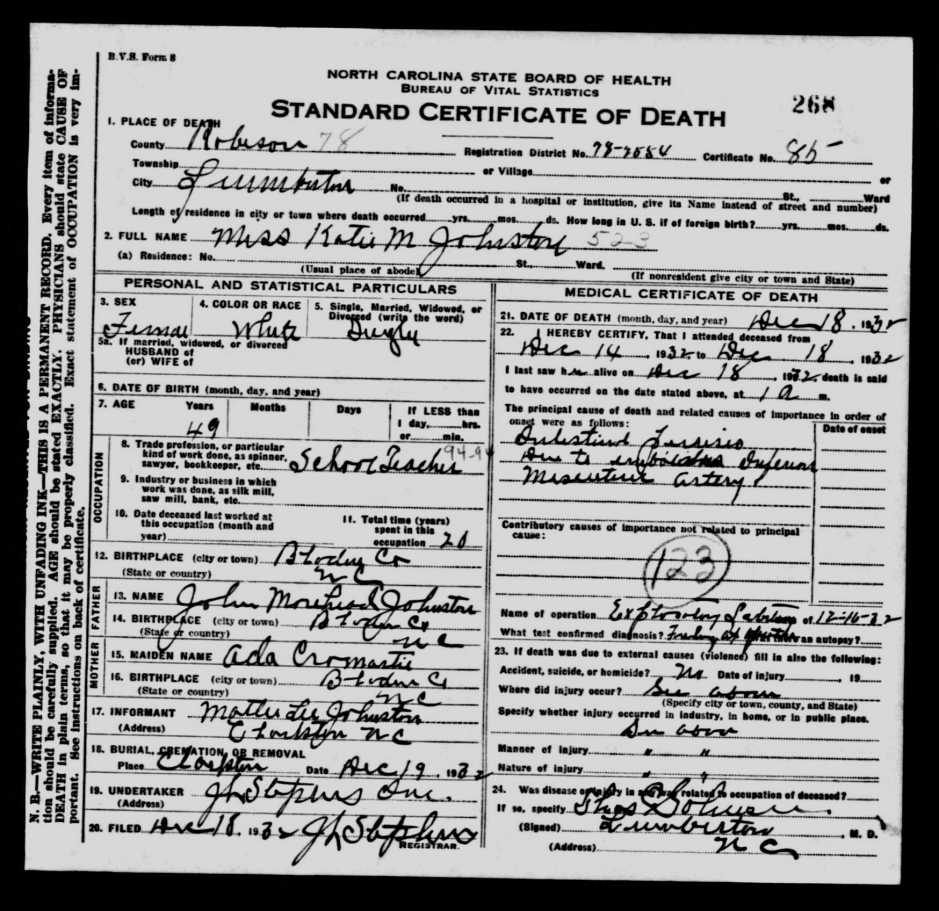 B.V.S. Form 8
NORTH CAROLINA STATE BOARD OF HEALTH
BUREAU OF VITAL STATISTICS
STANDARD CERTIFICATE OF DEATH
268
1. PLACE OF DEATH
County Robeson 78 Registration District No. 78-7554 Certificate No. 85
Township or Village or
City Lumberton No. St., Ward
(If death occurred in a hospital or institution, give its Name instead of street and number)
Length of residence in city or town where death occurred yrs. mos. ds. How long in U. S. if of foreign birth? yrs. mos. ds.
2. FULL NAME Miss Katie M Johnston 523
(a) Residence: No. St., Ward.
(Usual place of abode) (If nonresident give city or town and State)
PERSONAL AND STATISTICAL PARTICULARS
3. SEX 4. COLOR OR RACE 5. Single, Married, Widowed, or Divorced (write the word)
Female White Single
5a. If married, widowed, or divorced
HUSBAND of
(or) WIFE of
6. DATE OF BIRTH (month, day, and year)
7. AGE Years Months Days If LESS than
1 day, hrs.
or min.
49
OCCUPATION
8. Trade profession, or particular
kind of work done, as spinner,
sawyer, bookkeeper, etc. School Teacher 94-94
9. Industry or business in which
work was done, as silk mill,
saw mill, bank, etc.
10. Date deceased last worked at
this occupation (month and
year)
11. Total time (years)
spent in this
occupation 20
12. BIRTHPLACE (city or town) Bladen Co
(State or country) N C
FATHER
13. NAME John Morehead Johnston
14. BIRTHPLACE (city or town) Bladen Co
(State or country) N C
MOTHER
15. MAIDEN NAME Ada Cromartie
16. BIRTHPLACE (city or town) Bladen Co
(State or country) N C
17. INFORMANT Mattie Lee Johnston
(Address) Clarkton N C
18. BURIAL, CREMATION, OR REMOVAL
Place Clarkton Date Dec 19, 1932
19. UNDERTAKER J L Stephens Inc.
(Address)
20. FILED Dec 18, 1932 J L Stephens
REGISTRAR.
MEDICAL CERTIFICATE OF DEATH
21. DATE OF DEATH (month, day, and year) Dec 18, 1932
22. I HEREBY CERTIFY, That I attended deceased from
Dec 14, 1932, to Dec 18, 1932
I last saw her alive on Dec 18, 1932, death is said
to have occurred on the date stated above, at 1 a m.
The principal cause of death and related causes of importance in order of
onset were as follows: Date of onset
Intestinal
Due to Inferior
Mesenteric artery
Contributory causes of importance not related to principal
cause:
123
Name of operation Exploratory of 12-16-32
What test confirmed diagnosis? Was there an autopsy?
23. If death was due to external causes (violence) fill in also the following:
Accident, suicide, or homicide? No Date of injury , 19
Where did injury occur? See above
(Specify city or town, county, and State)
Specify whether injury occurred in industry, in home, or in public place.
See above
Manner of injury " "
Nature of injury " "
24. Was disease or injury in any way related to occupation of deceased?
If so, specify
(Signed) Thos Johnson, M. D.
(Address) Lumberton
N C
N. B.—WRITE PLAINLY, WITH UNFADING INK—THIS IS A PERMANENT RECORD. Every item of information should be carefully supplied. AGE should be stated EXACTLY. PHYSICIANS should state CAUSE OF DEATH in plain terms, so that it may be properly classified. Exact statement of OCCUPATION is very important. See instructions on back of certificate.